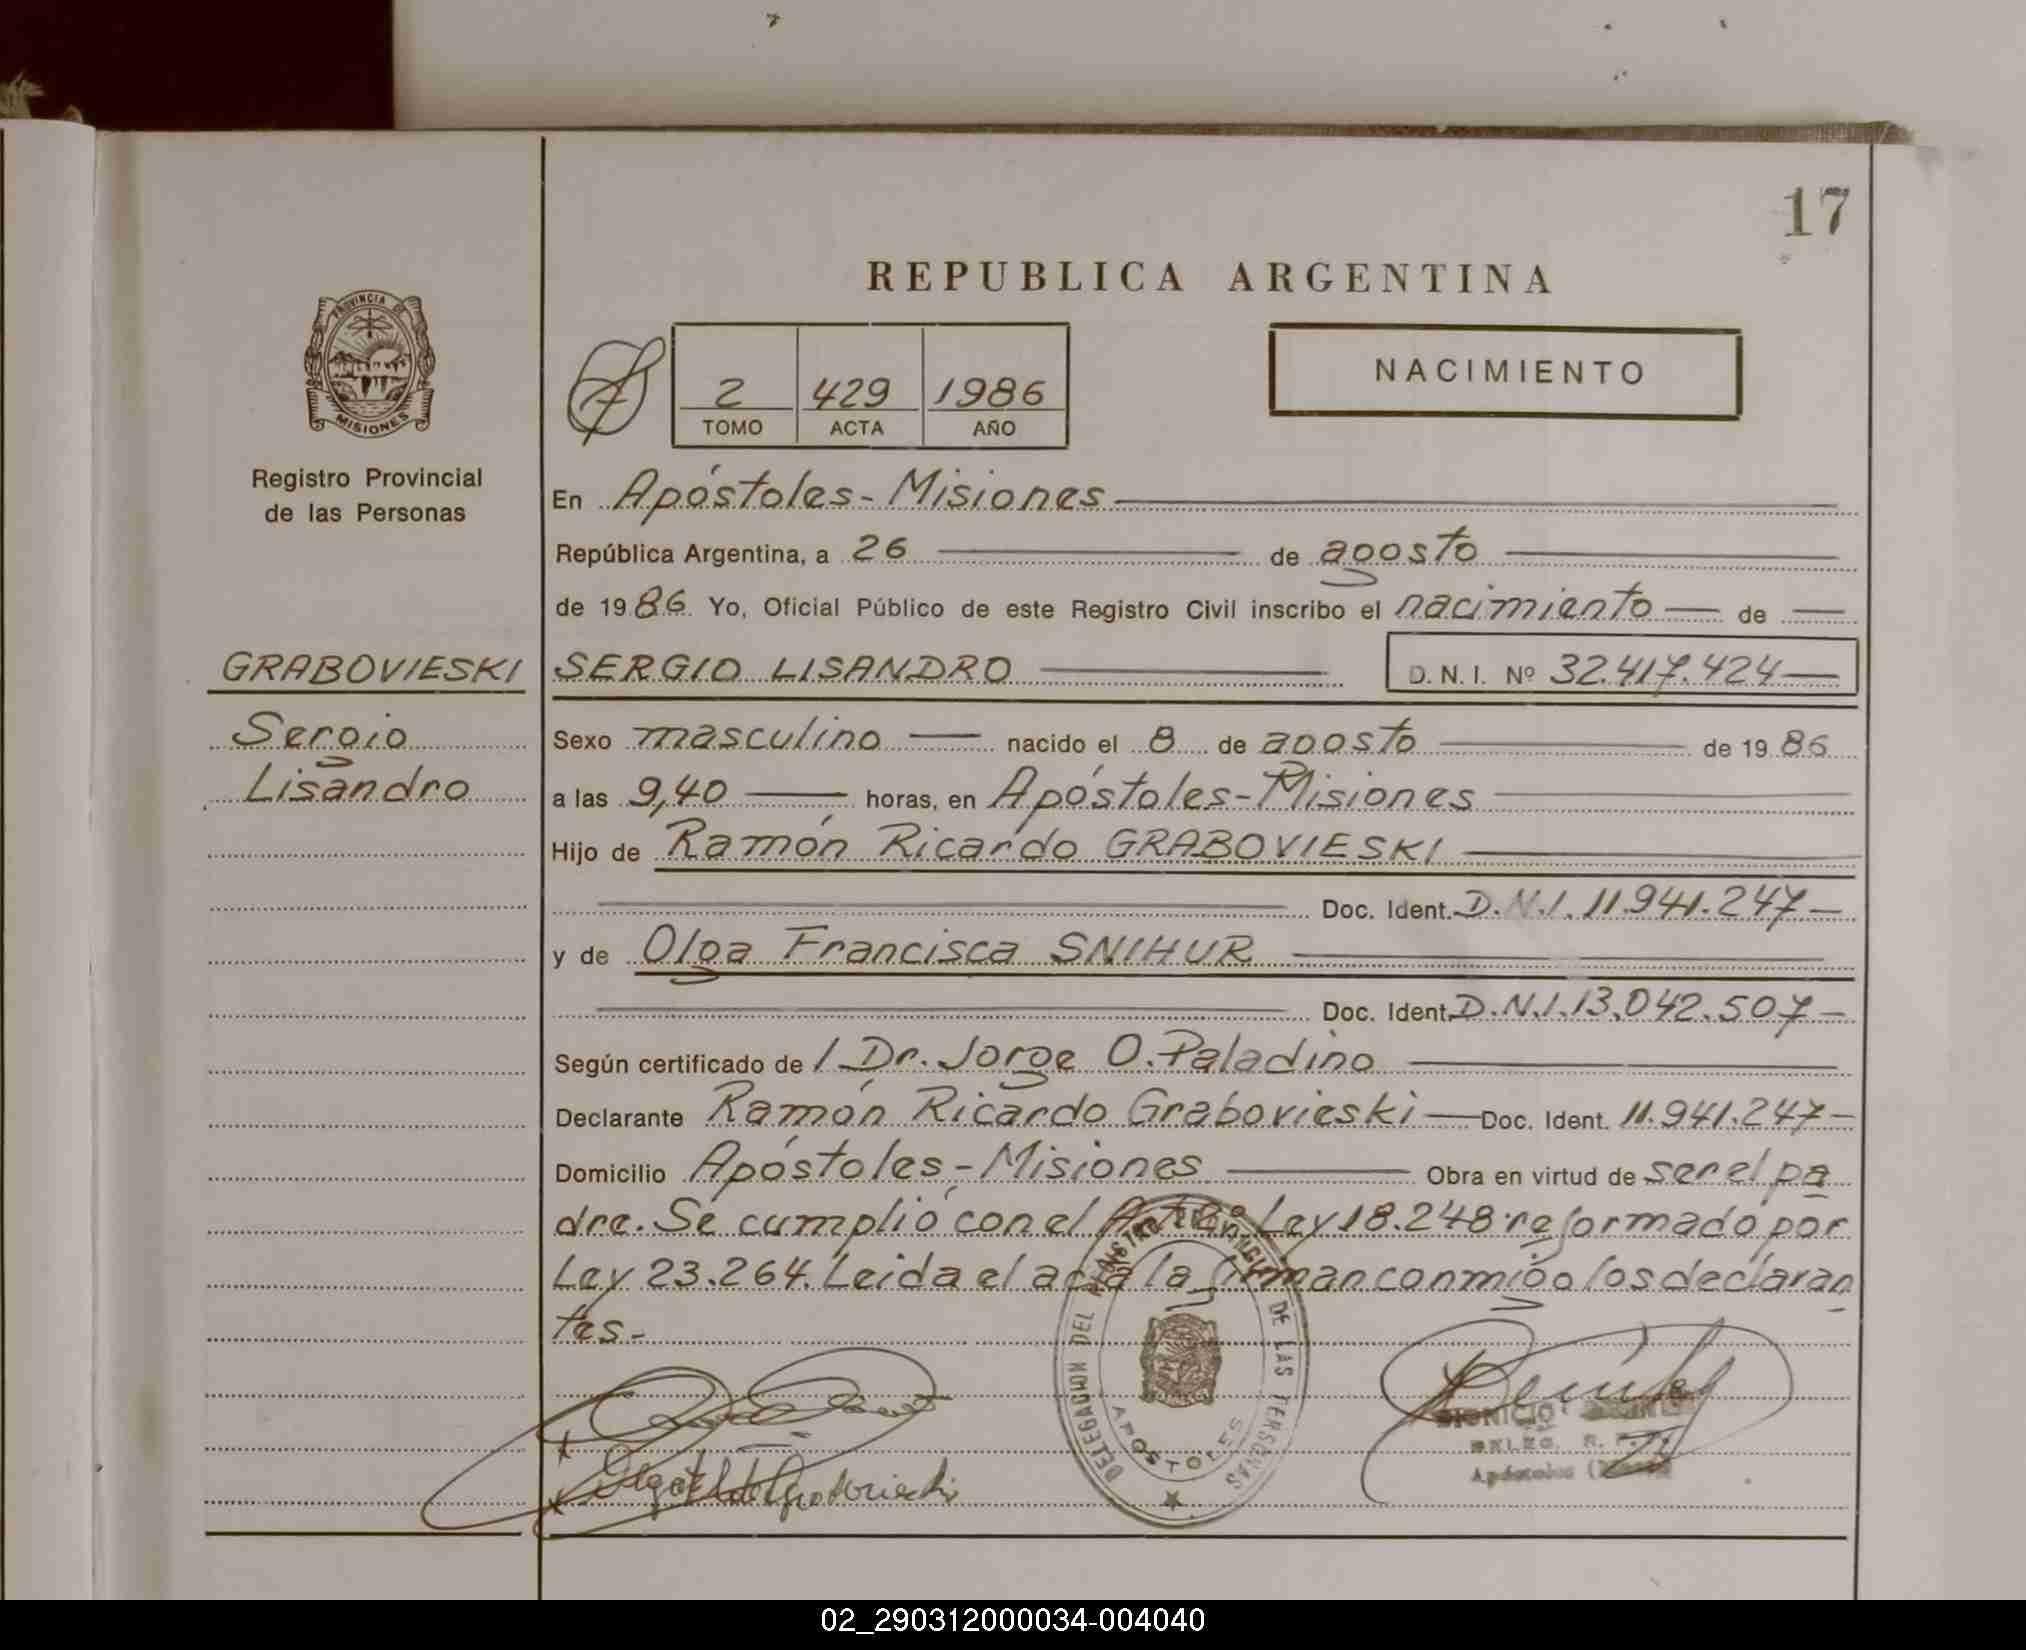 17
REPUBLICA ARGENTINA
PROVINCIA DE MISIONES
2 429 1986
TOMO ACTA AÑO
NACIMIENTO
Registro Provincial
de las Personas
En Apóstoles-Misiones
República Argentina, a 26 de agosto
de 1986. Yo, Oficial Público de este Registro Civil inscribo el nacimiento de
GRABOVIESKI SERGIO LISANDRO D. N. I. Nº 32.417.424
Sergio
Lisandro
Sexo masculino nacido el 8 de agosto de 1986
a las 9,40 horas, en Apóstoles-Misiones
Hijo de Ramón Ricardo GRABOVIESKI
Doc. Ident. D.N.I. 11.941.247-
y de Olga Francisca SNIHUR
Doc. Ident. D.N.I. 13.042.507-
Según certificado de / Dr. Jorge O. Paladino
Declarante Ramón Ricardo Grabovieski Doc. Ident. 11.941.247-
Domicilio Apóstoles-Misiones Obra en virtud de ser el pa
dre. Se cumplió con el Art 2º Ley 18.248 reformado por
Ley 23.264. Leida el acta la firman conmigo los declaran
tes-
DELEGACION DEL REGISTRO PROVINCIAL DE LAS PERSONAS
APOSTOLES
DIONICIO
DELEG. R. P.
Apóstoles
02_290312000034-004040